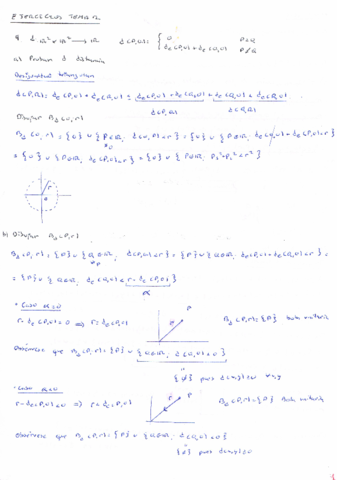 EJERCICIOS TEMA 2
d: ℝ² x ℝ² → ℝ d(P,Q) = { 0 P=Q
d_e(P,0) + d_e(Q,0) P≠Q
a) Probar d distancia
Desigualdad triangular
d(P,Q) = d_e(P,0) + d_e(Q,0) ≤ d_e(P,0) + d_e(R,0) + d_e(R,0) + d_e(Q,0)
d(P,R) d(R,Q)
Dibujar B_d(0,r)
B_d(0,r) = {0} ∪ {P∈ℝ² : d(0,P)<r} = {0} ∪ {P∈ℝ² : d_e(0,0) + d_e(P,0) < r}
= {0} ∪ {P∈ℝ² : d_e(P,0) < r} = {0} ∪ {P∈ℝ² : P₁²+P₂² < r²}
r
0
b) Dibujar B_d(P,r)
B_d(P,r) = {P} ∪ {Q∈ℝ² : d(P,Q)<r} = {P} ∪ {Q∈ℝ² : d_e(P,0) + d_e(Q,0) < r} =
= {P} ∪ {Q∈ℝ² : d_e(Q,0) < r - d_e(P,0)}
α
· Caso α=0
r - d_e(P,0) = 0 ⟹ r = d_e(P,0)
r P
B_d(P,r) = {P} Bola unitaria
Obsérvese que B_d(P,r) = {P} ∪ {Q∈ℝ² : d(Q,0) < 0}
{∅} pues d(x,y) ≥ 0 ∀x,y
r - d_e(P,0) < 0 ⟹ r < d_e(P,0)
r P
B_d(P,r) = {P} Bola unitaria
Obsérvese que B_d(P,r) = {P} ∪ {Q∈ℝ² : d_e(Q,0) < 0}
{∅} pues d(x,y) ≥ 0
1